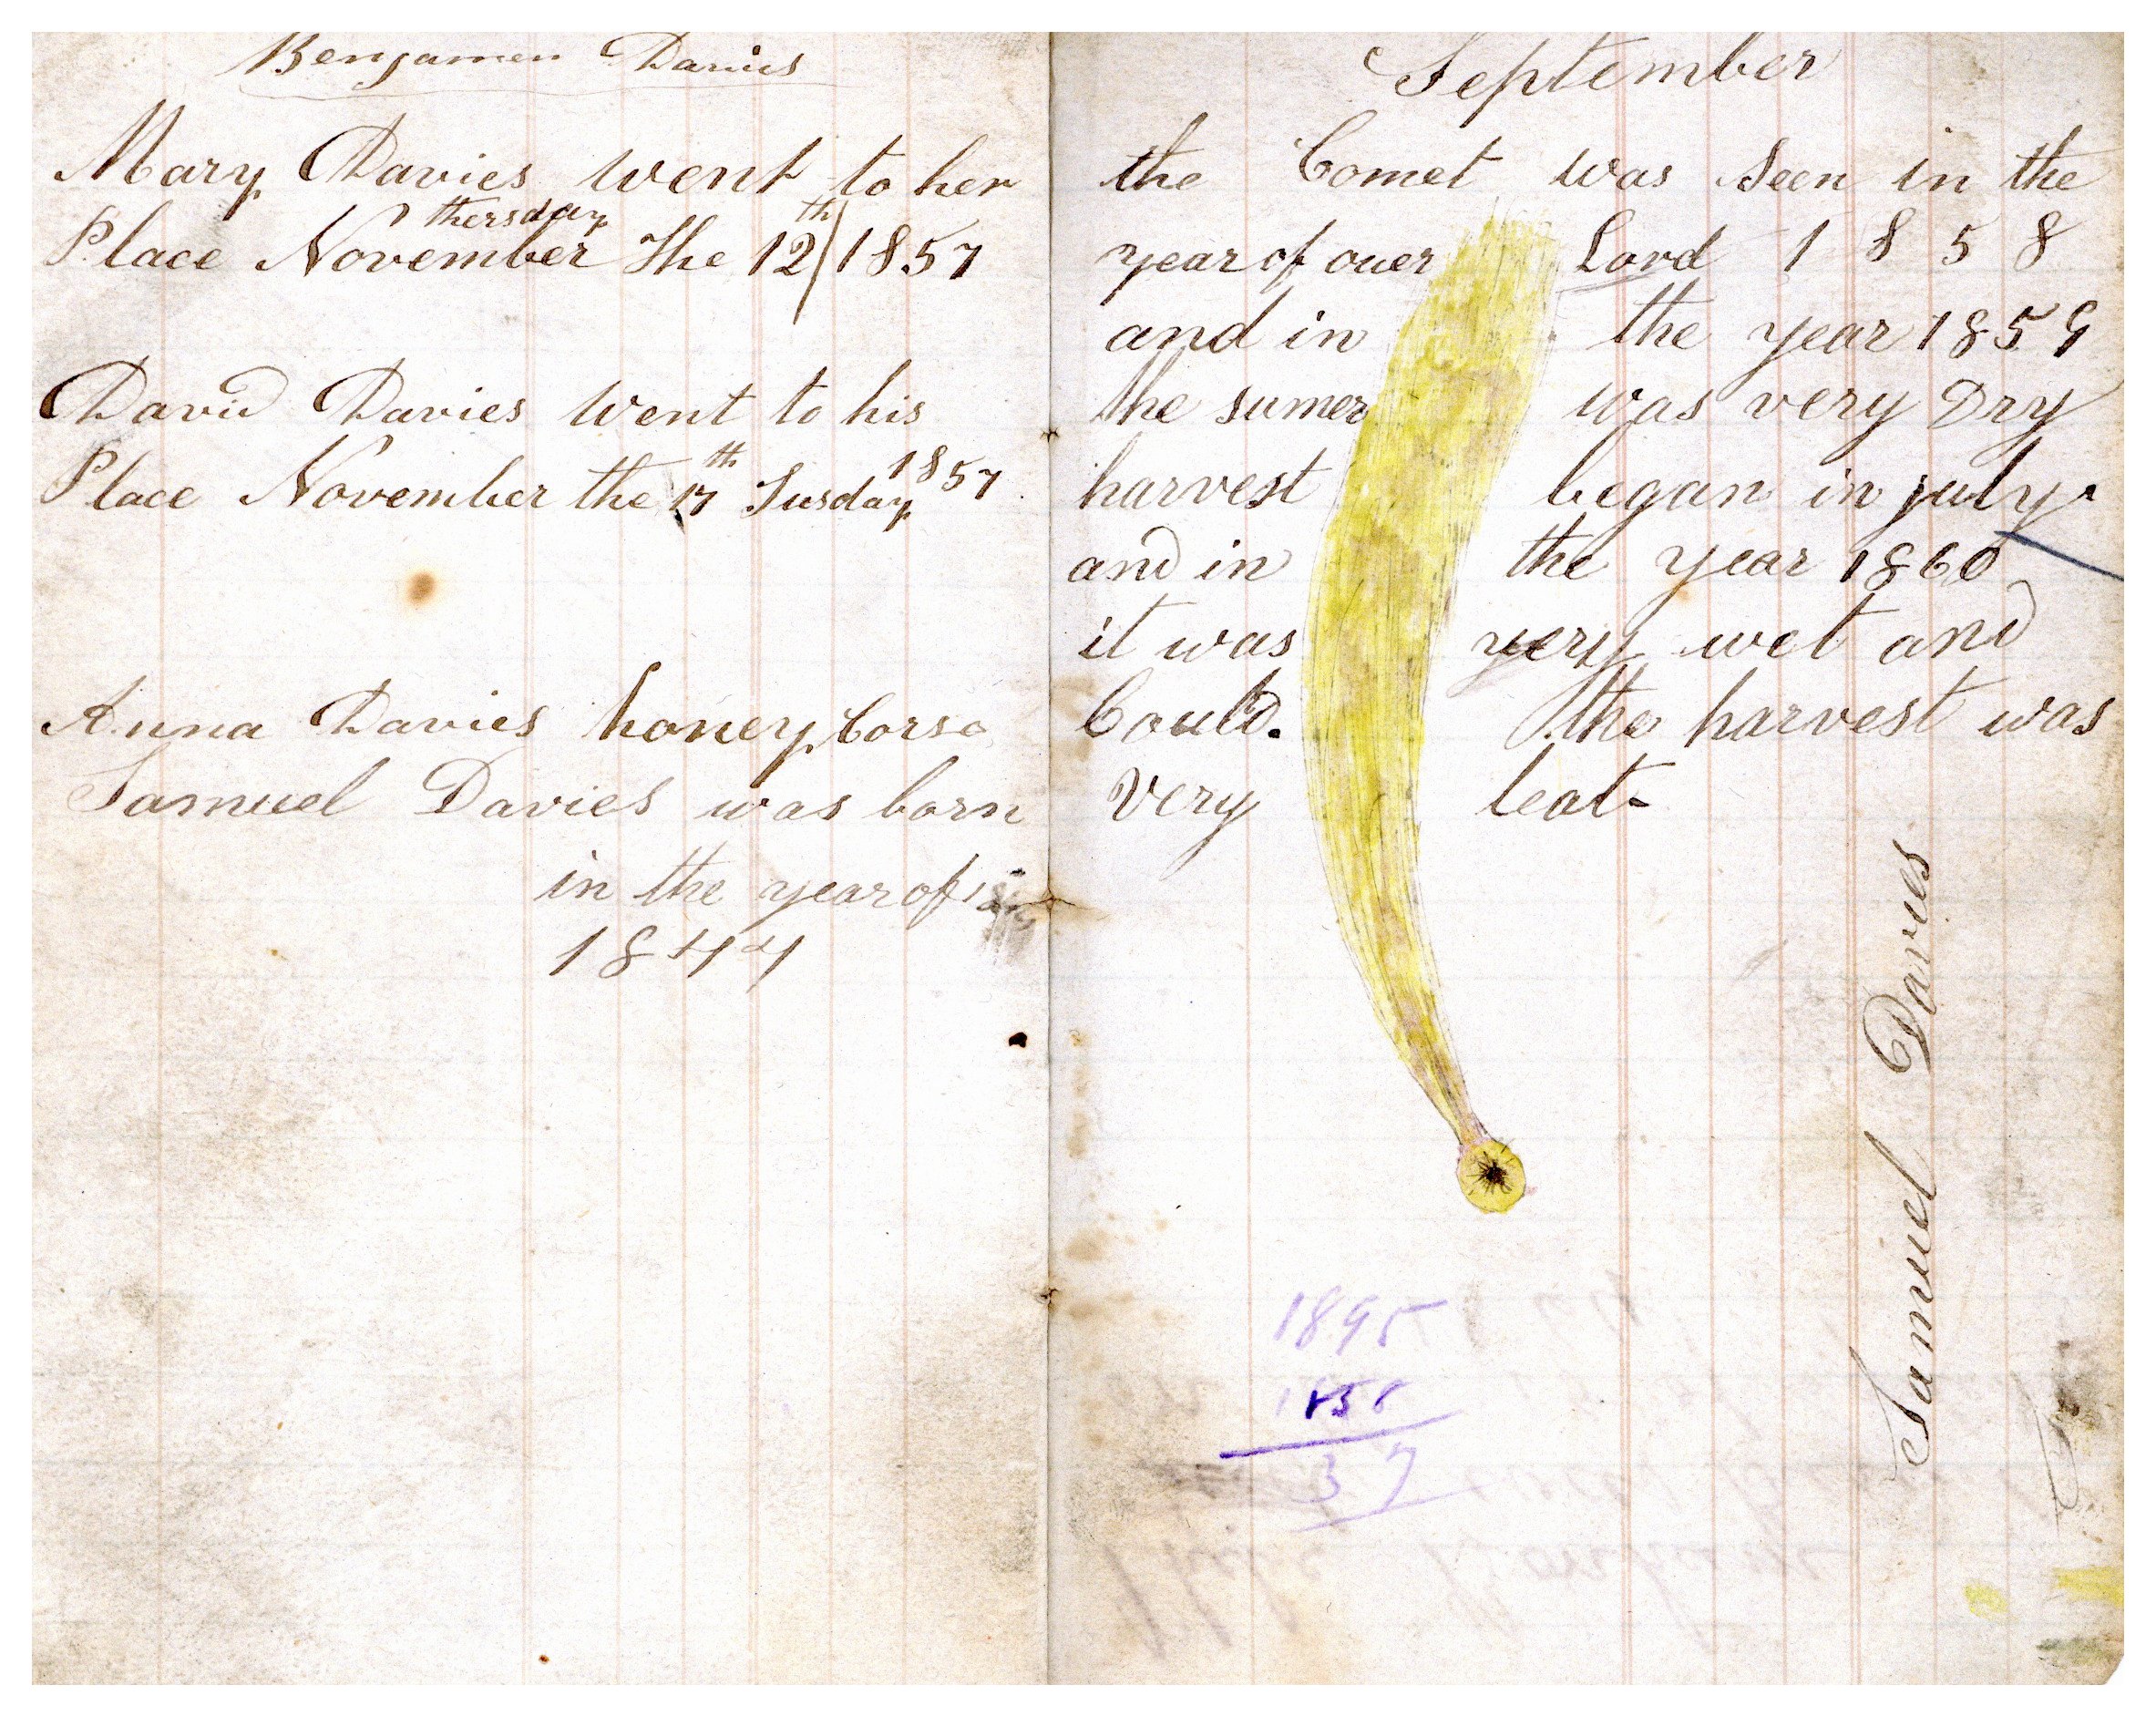 Benjamen Davies
Mary Davies went to her
thersday
Place November The 12th 1857
David Davies went to his
Place November the 17th Tusday 1857
Anna Davies honey Corse
Samuel Davies was born
in the year of
1844
September
the Comet was seen in the
year of ouer Lord 1858
and in the year 1859
the sumer was very Dry
harvest began in july
and in the year 1860
it was very wet and
Could. the harvest was
very leat-
Samuel Davies
1895
1858
37